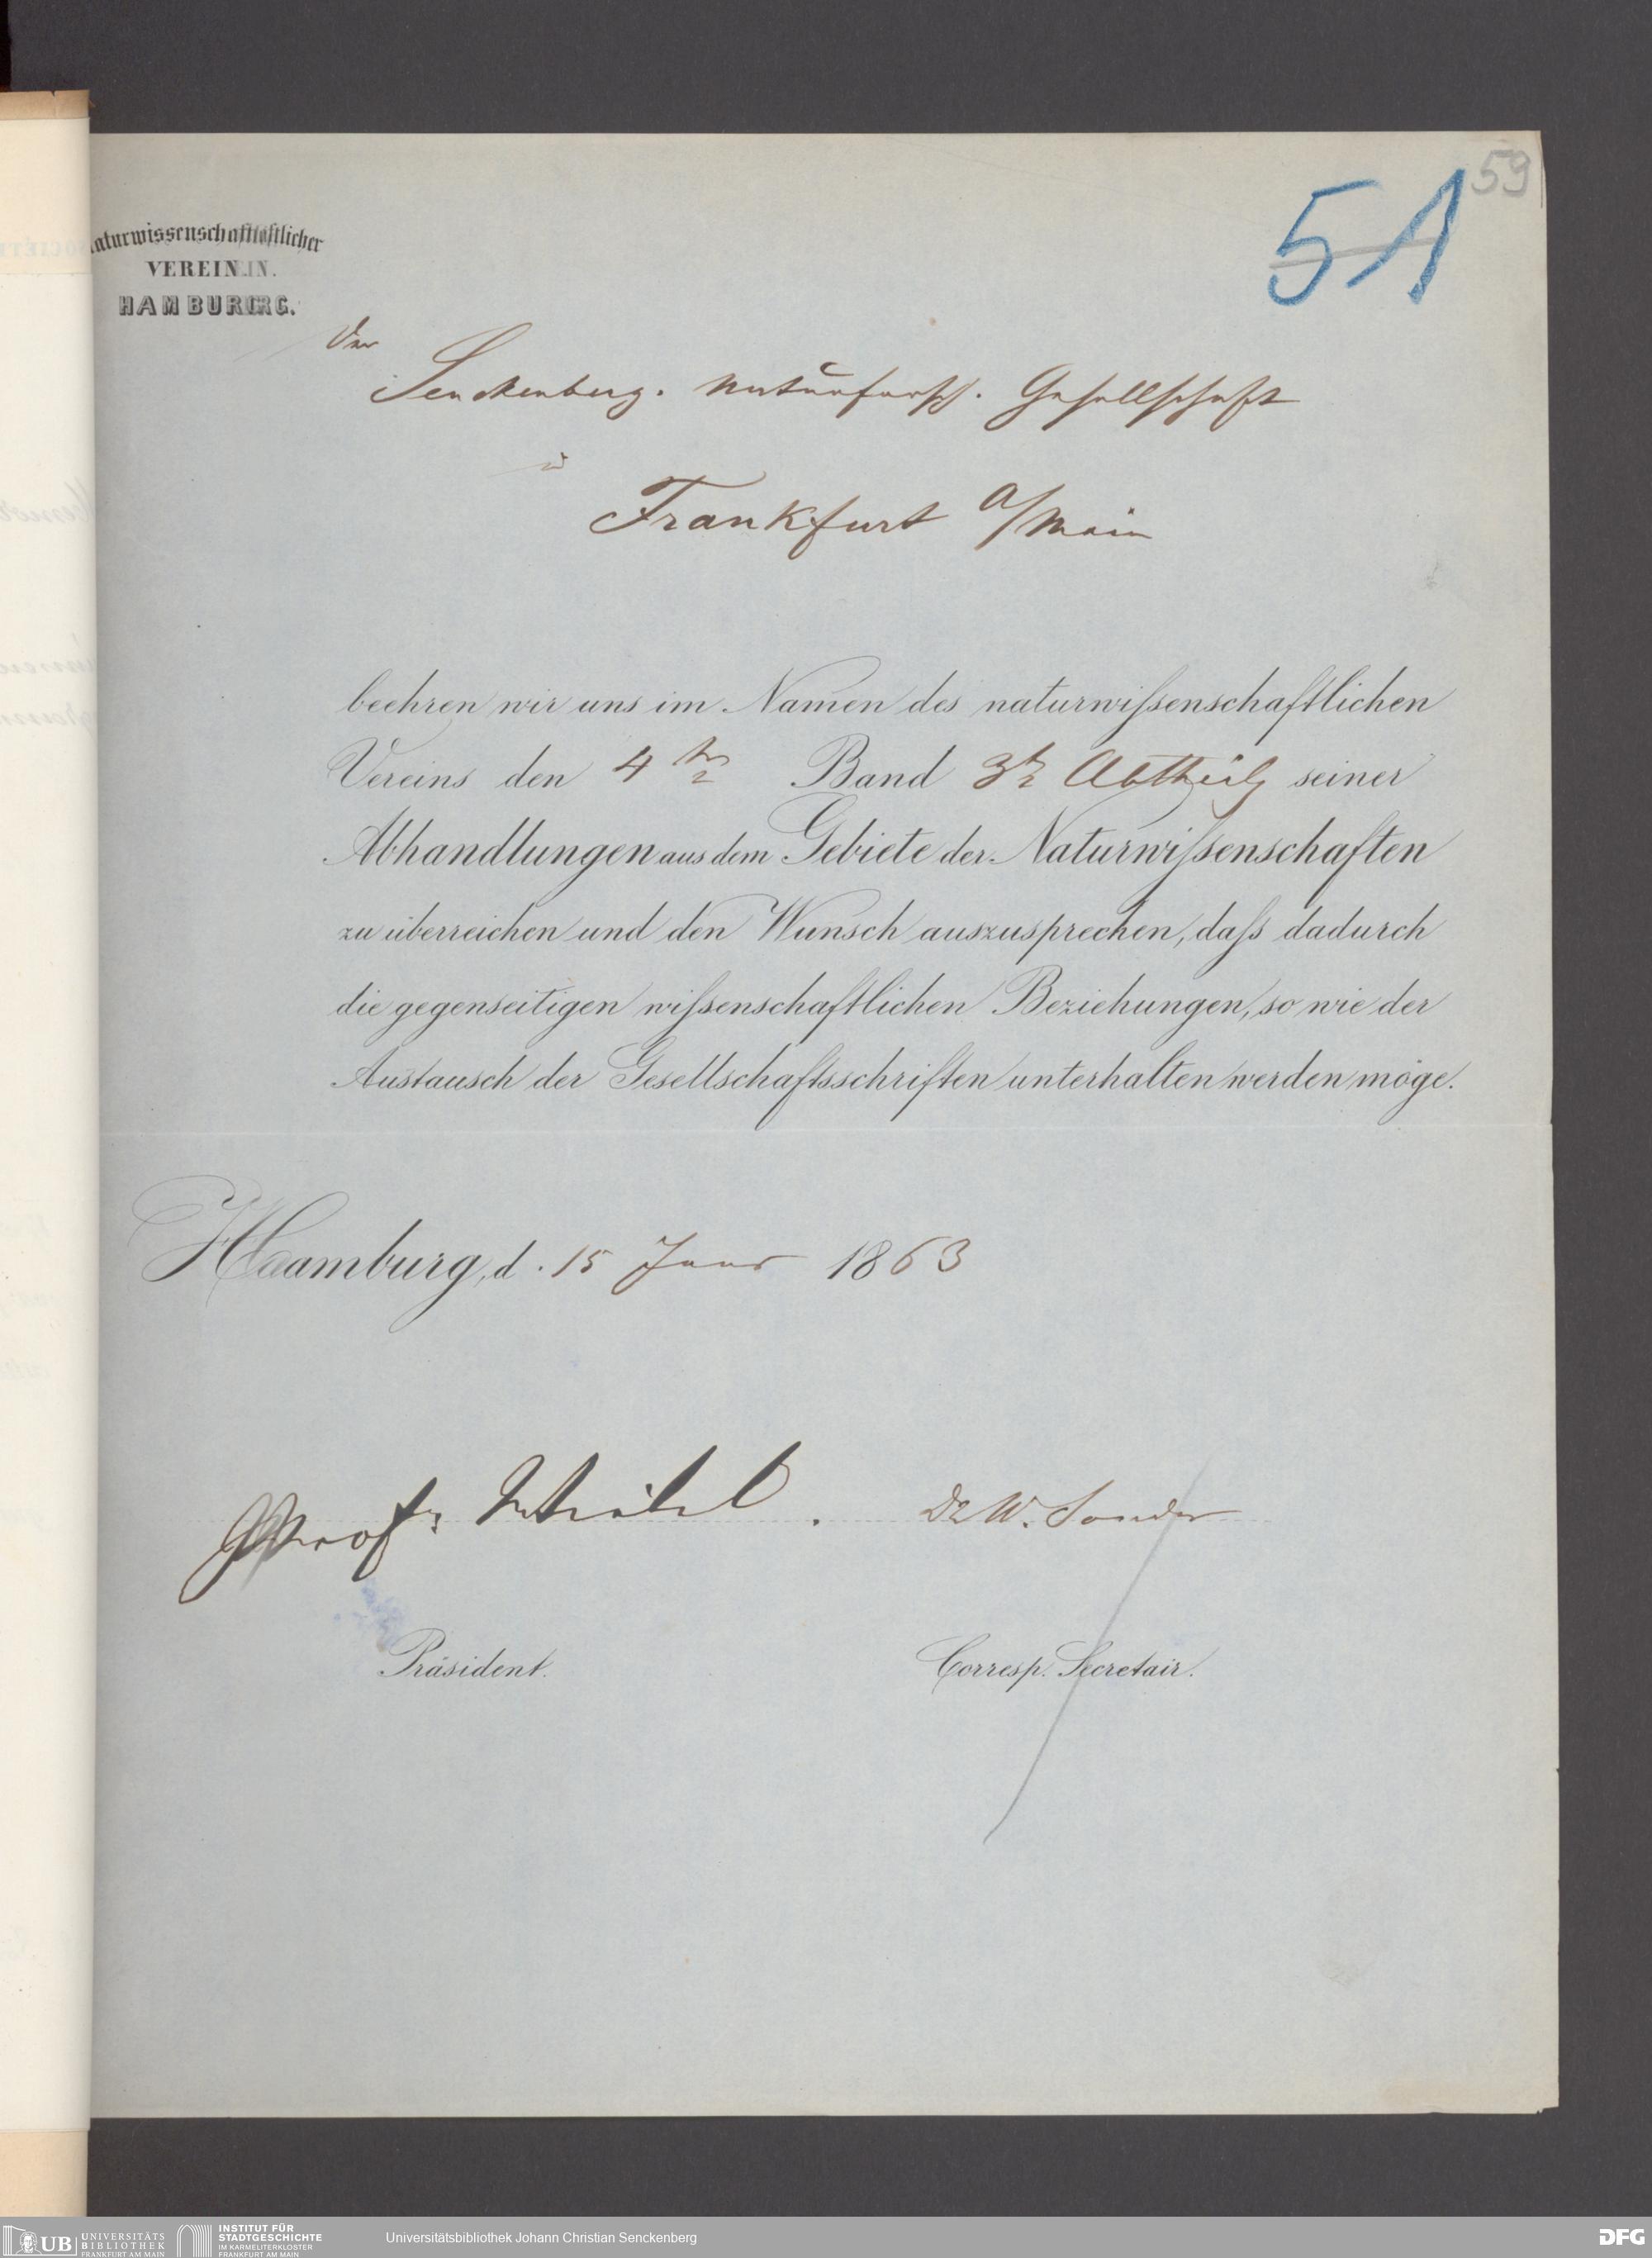 59
51
Naturwissenschaftlicher
VEREIN IN
HAMBURG.
Der
Senckenberg. naturforsch. Gesellschaft
in
Frankfurt a/Main
beehren wir uns im Namen des naturwiſsenschaftlichen
Vereins den 4ten Band 3te Abtheilg seiner
Abhandlungen aus dem Gebiete der Naturwiſsenschaften
zu überreichen und den Wunsch auszusprechen, daſs dadurch
die gegenseitigen wiſsenschaftlichen Beziehungen, so wie der
Austausch der Gesellschaftsschriften unterhalten werden möge.
Hamburg, d. 15 Janr 1863
Prof. Dr W. Sonder
Präsident. Corresp. Secretair.
UB UNIVERSITÄTS
BIBLIOTHEK
FRANKFURT AM MAIN
INSTITUT FÜR
STADTGESCHICHTE
IM KARMELITERKLOSTER
FRANKFURT AM MAIN
Universitätsbibliothek Johann Christian Senckenberg
DFG